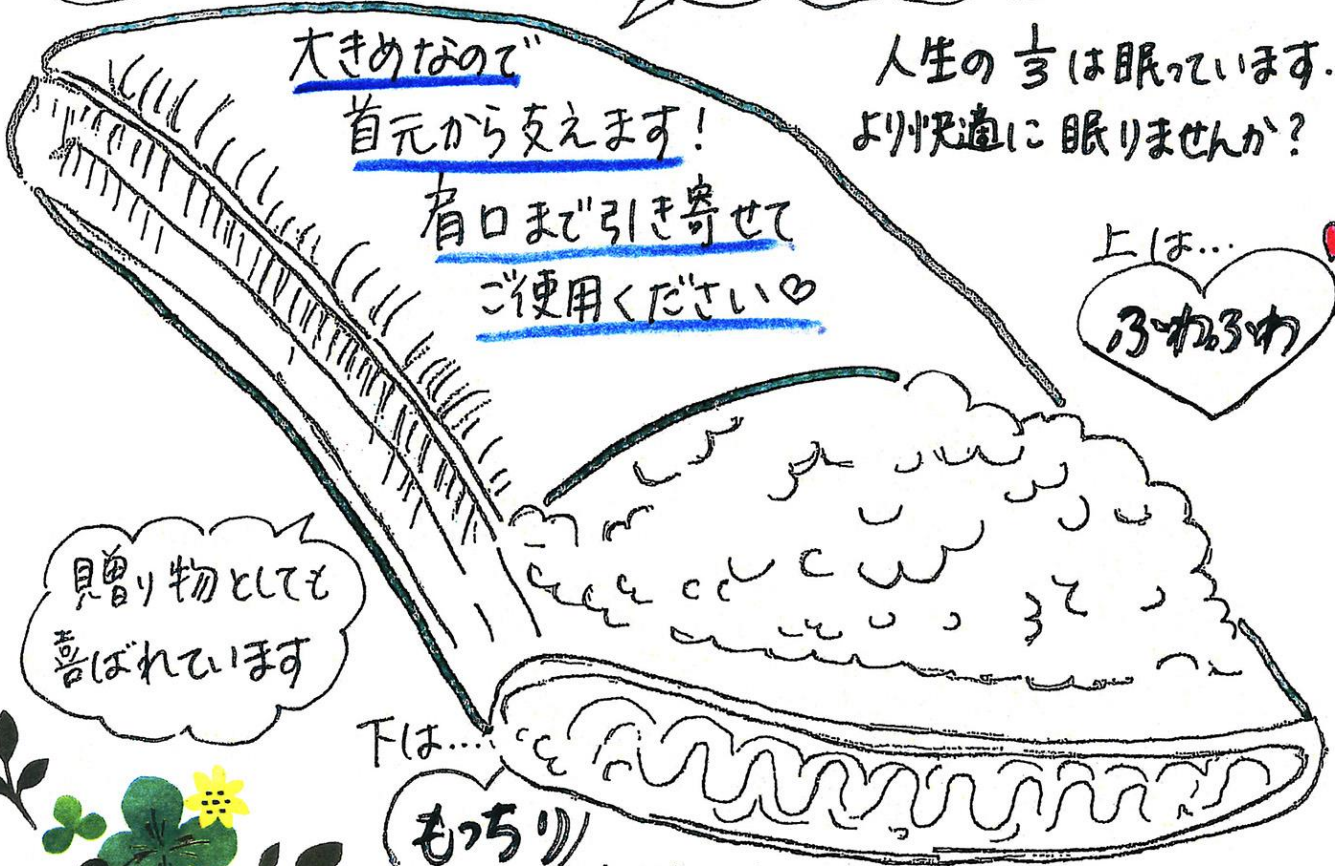 大きめなので
首元から支えます!
肩口まで引き寄せて
ご使用ください♡
人生の 1/3 は眠っています.
より快適に眠りませんか?
上は…
ふわふわ
贈り物としても
喜ばれています
下は…
もっちり